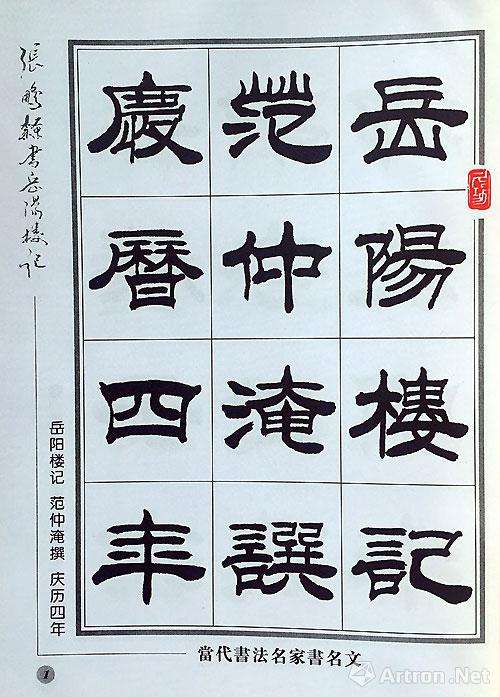 岳陽樓記
范仲淹譔
慶曆四年
張隸書岳陽樓记
岳阳楼记 范仲淹撰 庆历四年
當代書法名家書名文
1
Artron.Net